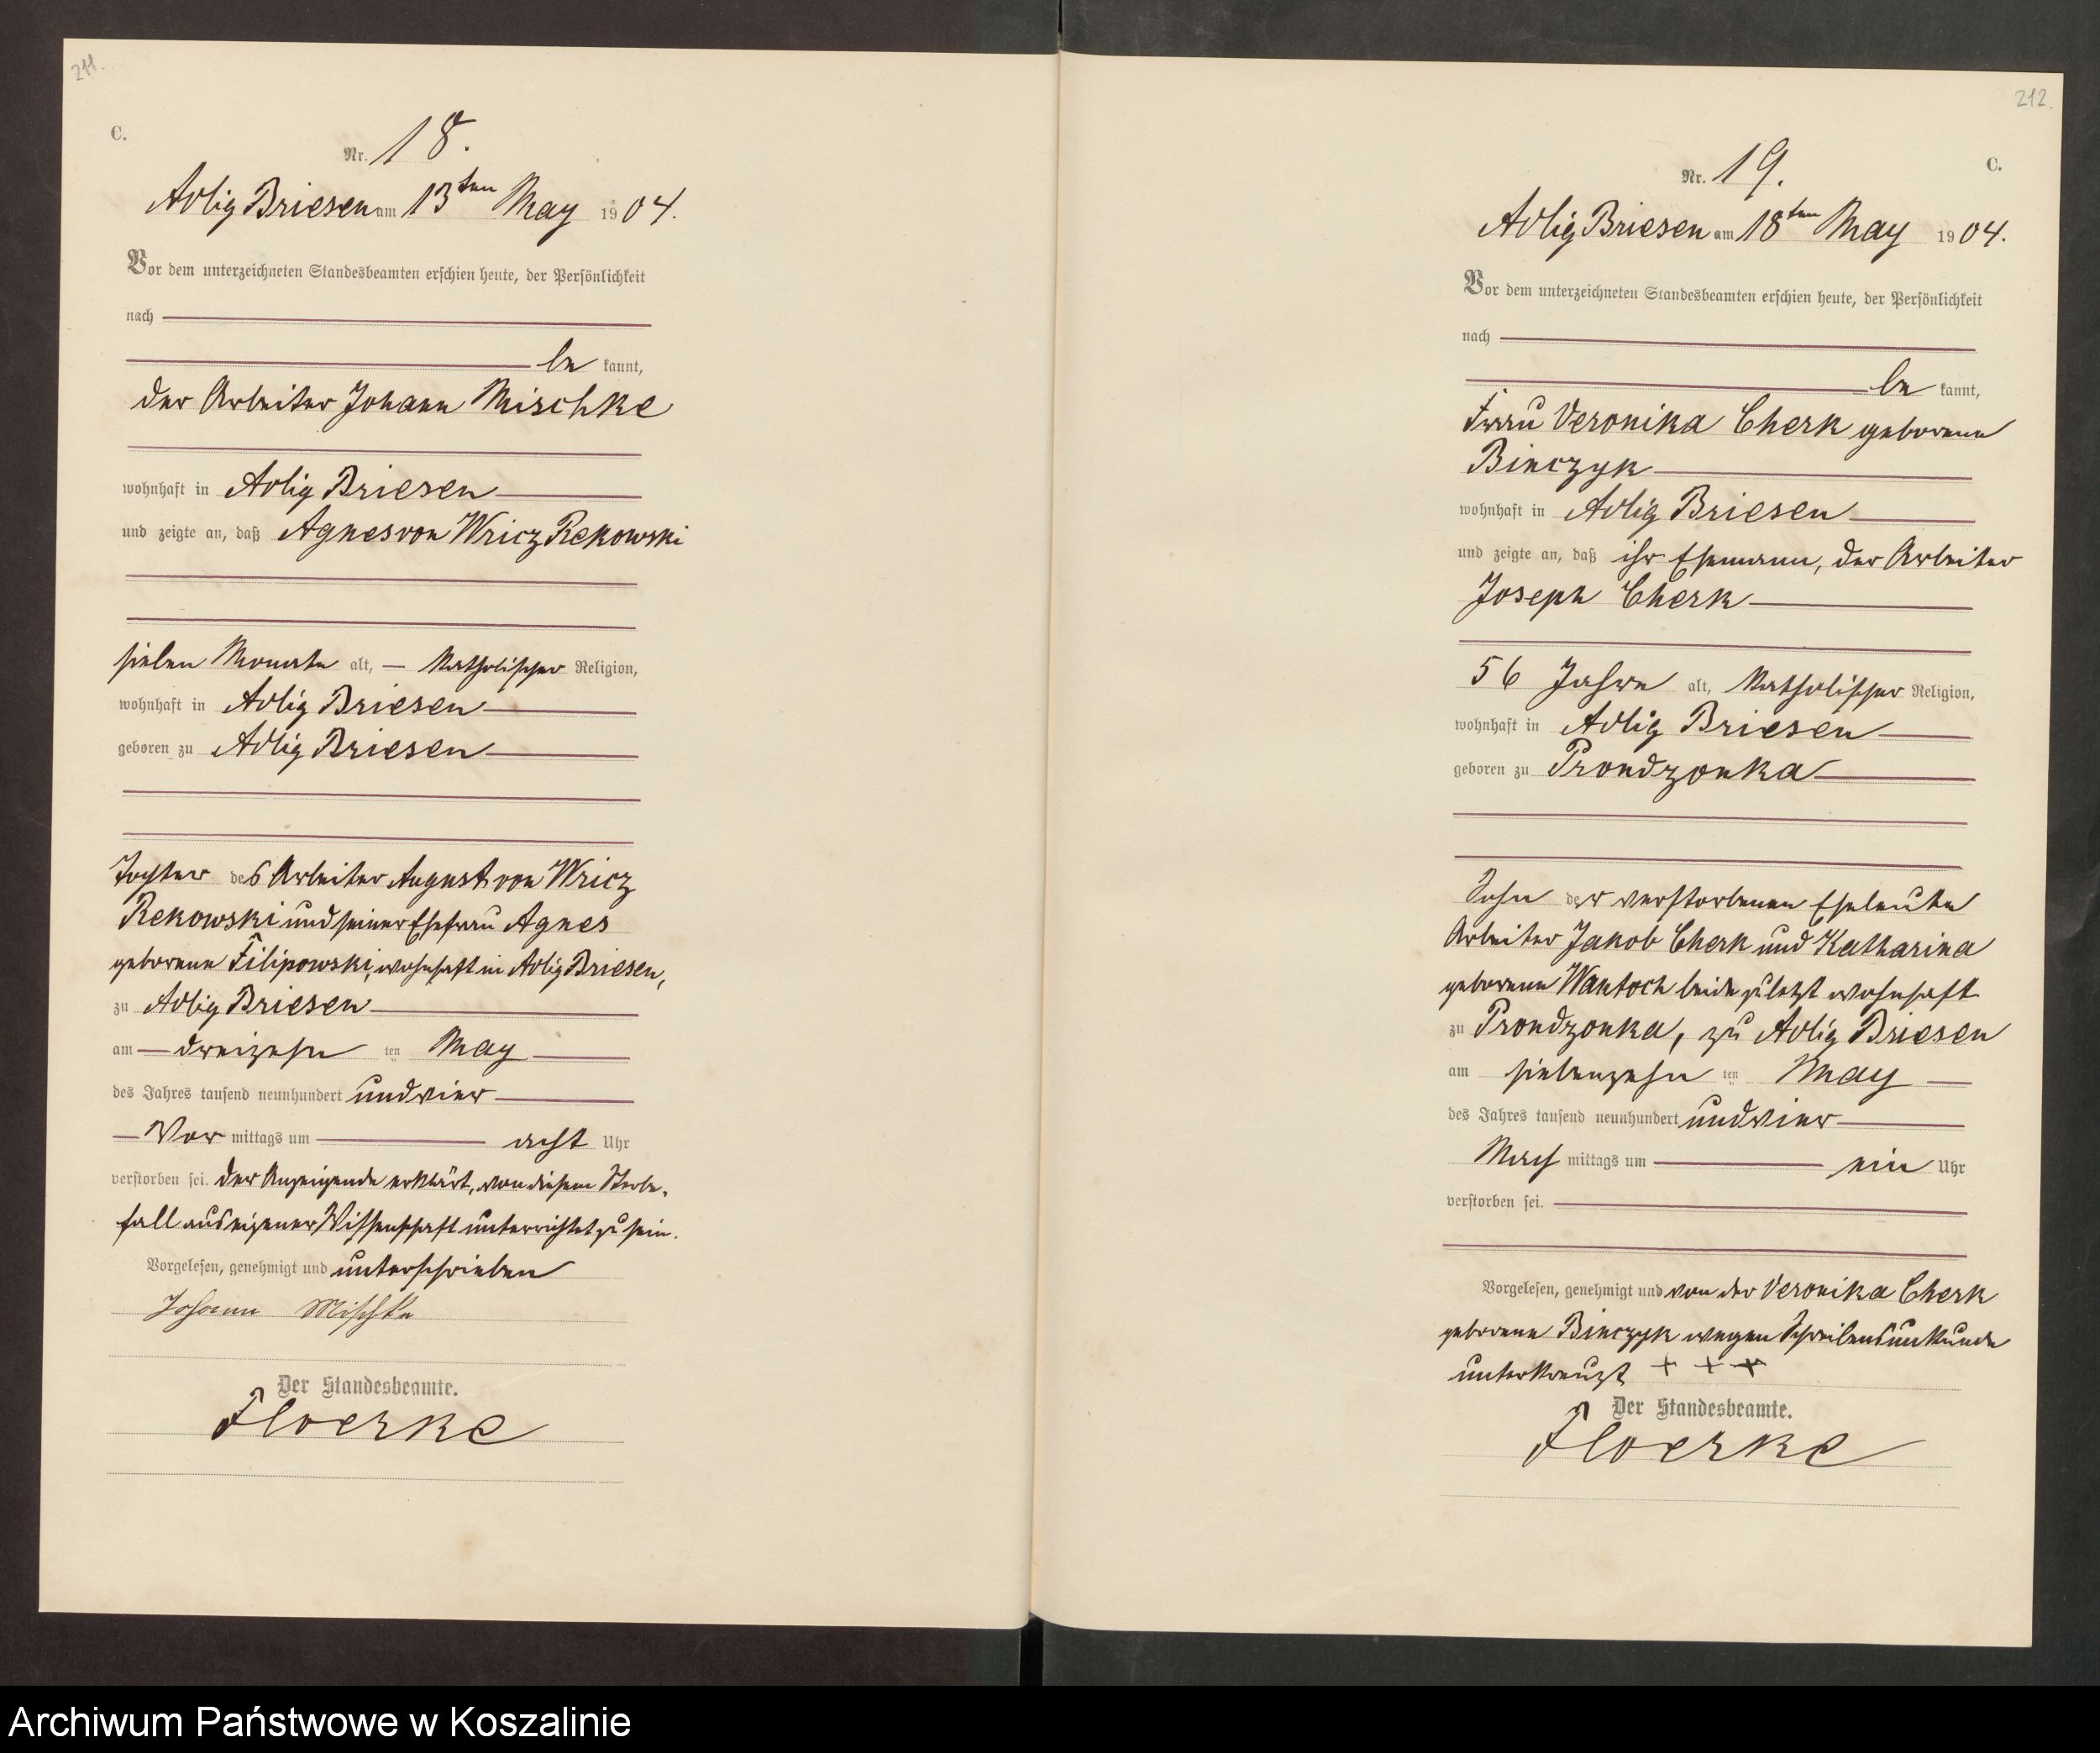 211.
C.
Nr. 18.
Adlig Briesen am 13ten May 1904.
Vor dem unterzeichneten Standesbeamten erschien heute, der Persönlichkeit
nach
be kannt,
der Arbeiter Johann Mischke
wohnhaft in Adlig Briesen
und zeigte an, daß Agnes von Wricz Rekowski
sieben Monate alt, katholischer Religion,
wohnhaft in Adlig Briesen
geboren zu Adlig Briesen
Tochter des Arbeiter August von Wricz
Rekowski und seiner Ehefrau Agnes
geborene Filipowski, wohnhaft in Adlig Briesen,
zu Adlig Briesen
am dreizehn ten May
des Jahres tausend neunhundert und vier
Vor mittags um acht Uhr
verstorben sei. Der Anzeigende erklärt, von diesem Sterbe-
fall aus eigener Wissenschaft unterrichtet zu sein.
Vorgelesen, genehmigt und unterschrieben
Johann Mischke
Der Standesbeamte.
Floerke
212.
C.
Nr. 19.
Adlig Briesen am 18ten May 1904.
Vor dem unterzeichneten Standesbeamten erschien heute, der Persönlichkeit
nach
be kannt,
Frau Veronika Cherk geborene
Binczyk
wohnhaft in Adlig Briesen
und zeigte an, daß ihr Ehemann, der Arbeiter
Joseph Cherk
56 Jahre alt, katholischer Religion,
wohnhaft in Adlig Briesen
geboren zu Prondzonka
Sohn der verstorbenen Eheleute
Arbeiter Jakob Cherk und Katharina
geborene Wantoch beide zuletzt wohnhaft
zu Prondzonka, zu Adlig Briesen
am siebenzehn ten May
des Jahres tausend neunhundert und vier
Nach mittags um ein Uhr
verstorben sei.
Vorgelesen, genehmigt und von der Veronika Cherk
geborene Binczyk wegen Schreibensunkunde
unterkreuzt + + +
Der Standesbeamte.
Floerke
Archiwum Państwowe w Koszalinie